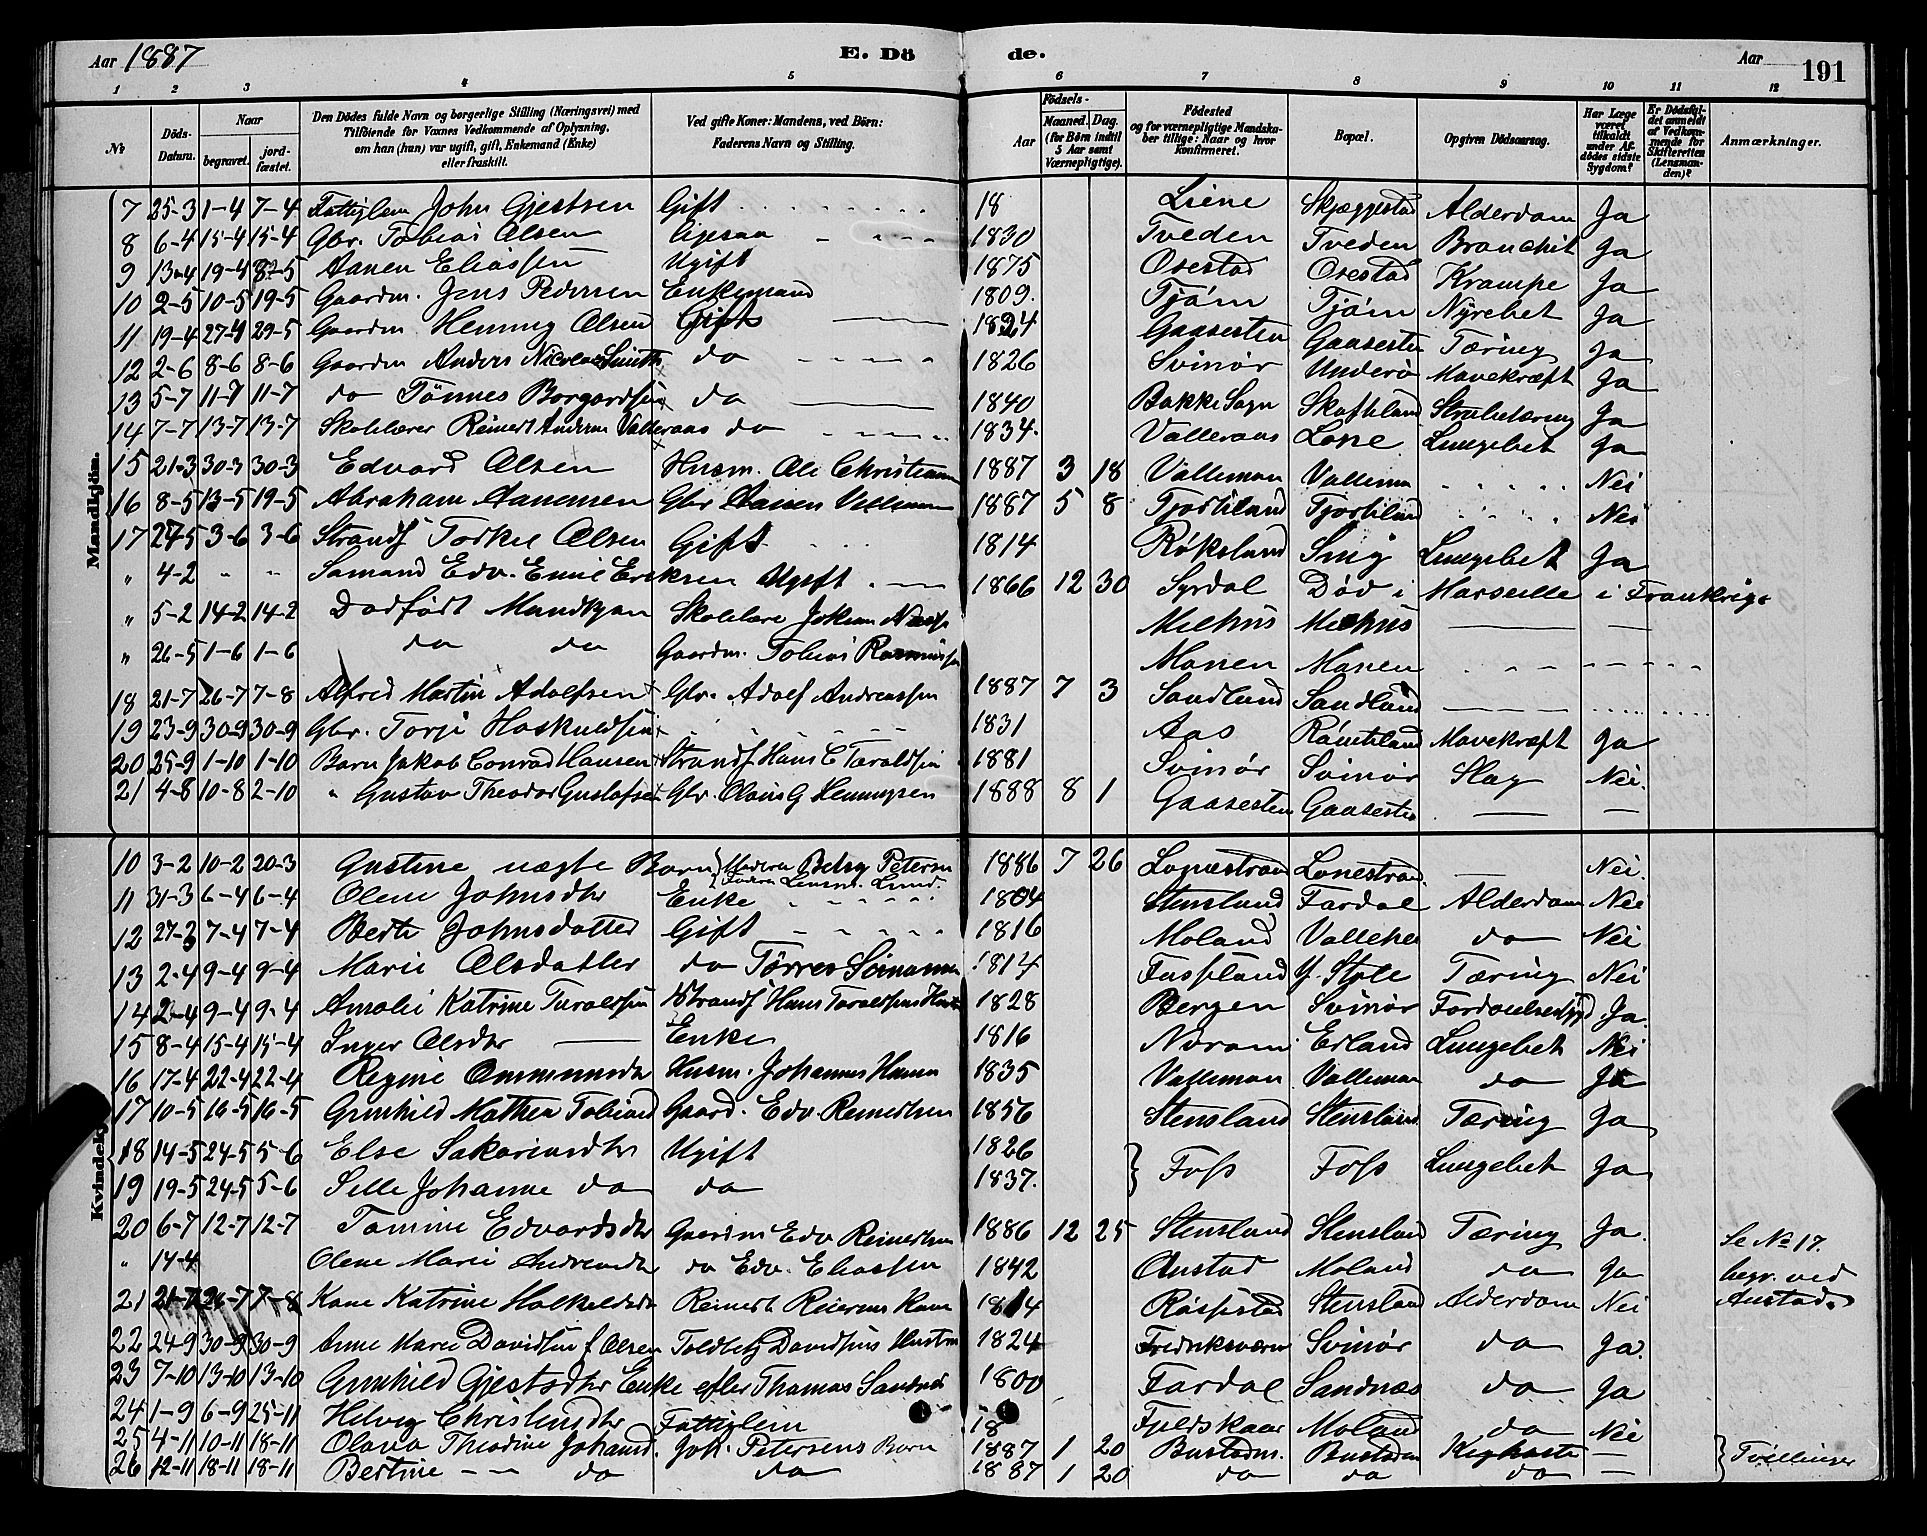 Aar 1887 E. Dö de. Aar 191
1 2 3 4 5 6 7 8 9 10 11 12
No Döds-Datum. Naar begravet. jordfæstet. Den Dödes fulde Navn og borgerlige Stilling (Næringsvei) med Tilföiende for Voxnes Vedkommende af Oplysning, om han (hun) var ugift, gift, Enkemand (Enke) eller fraskilt. Ved gifte Koner: Mandens, ved Börn: Faderens Navn og Stilling. Födsels- Aar Maaned. Dag. (for Börn indtil 5 Aar samt Værnepligtige). Födested og for værnepligtige Mandskaber tillige: Naar og hvor konfirmeret. Bopæl. Opgiven Dödsaarsag. Har Læge været tilkaldt under Afdödes sidste Sygdom? Er Dödsfaldet anmeldt af Vedkommende for Skifteretten (Lensmanden)? Anmærkninger.
Mandkjön.
7 25-3 1-4 7-4 Fattiglem John Gjestsen Gift 18 Liene Skjeggestad Alderdom Ja
8 6-4 15-4 15-4 Gbr. Tobias Olsen 1830 Tveden Tveden Bronchit Ja
9 13-4 19-4 Aanen Eliassen Ugift 1875 Osestad Osestad Krampe Ja
10 2-5 10-5 19-5 Gaardm. Jens Pedersen Enkemand 1809. Tjøm Tjøm Nyrebet Ja
11 19-4 27-4 29-5 Gaardm Henning Olsen Gift 1824 Gaasesten Gaasesten Tæring Ja
12 2-6 8-6 8-6 Gaardm Anders Nicolai Smith do 1826 Svinør Underø Mavekræft Ja
13 5-7 11-7 11-7 do Tönnes Borgardsen do 1840 Bakke Sogn Skofteland Strubetæring Ja
14 7-7 13-7 13-7 Skolelærer Reinert Andersen Valleraas do 1834. Valleraas Lone Lungebet Ja
15 21-3 30-3 30-3 Edvard Olsen Husm. Ole Christiansen 1887 3 18 Valleman Valleman Nei
16 8-5 13-5 19-5 Abraham Aanensen Gbr Aanen 1887 5 8 Nei
17 27-5 3-6 3-6 Strands Torkel Olsen Gift 1814 Røksland Snig Lungebet Ja
" 4-2 " " Sømand Edv. Emil Eriksen Ugift 1866 12 30 Syrdal Död i Marseille i Frankrig.
" 5-2 14-2 14-2 Dødfödt Mandkjøn Skolelære Jokum Melhus Melhus
" 26-5 1-6 1-6 do do Gaardm. Tobias Rasmussen Manen Manen
18 21-7 26-7 7-8 Alfred Martin Adolfsen Gbr. Adolf Andreassen 1887 7 3 Sandland Sandland
19 23-9 30-9 30-9 Gbr. Torje Haskuldsen 1831 Aas Mavekræft Ja
20 25-9 1-10 1-10 Barn Jakob Conrad Hansen Strands Hans C Taraldsen 1881 Svinør Svinør Slag Nei.
21 4-8 10-8 2-10 " Gustav Theodor Gustafsen Gbr. Olaus G Henningsen 1888 8 1 Gaasesten Gaasesten
Kvindekj
10 3-2 10-2 20-3 Gustine uægte Barn Moderen Betsy Petersen Faderen Lensm. Lund. 1886 7 26 Lonestrand Lonestrand Nei.
11 31-3 6-4 6-4 Olene Johnsdtr Enke 1804 Stensland Fardal Alderdom Nei
12 27-3 7-4 7-4 Berte Johnsdatter Gift 1816 Moland do Nei
13 2-4 9-4 9-4 Marie Olsdatter do Tørres Sörmannen 1814 Fuskeland Y. Støle Tæring Nei
14 2-4 9-4 9-4 Amalie Katrine Taraldsen Strands Hans Taraldsens Hustru 1828 Bergen Svinör Ja.
15 8-4 15-4 15-4 Inger Olsdtr Enke 1816 Erland Lungebet Nei
16 17-4 22-4 22-4 Regine Ommundsdtr Husm. Johannes Hansen 1835 Valleman Valleman do Ja
17 10-5 16-5 16-5 Gunhild Mathea Tobiasd Gaard. Edv Reinertsen 1856 Stensland Stensland Tæring Ja
18 14-5 24-5 5-6 Else Sakariasdtr Ugift 1826 Foss Foss Lungebet Ja
19 19-5 24-5 5-6 Sille Johanne do do 1837.
20 6-7 12-7 12-7 Tomine Edvardsdtr Gaardm Edv Reinertsen 1886 12 25 Stensland Stensland Tæring Ja. Se No 17.
" 14-4 Olene Marie Andreasdtr do Edv. Eliassen 1842 Austad Moland do Ja begr. ved Austad.
21 21-7 26-7 7-8 Kone Katrine Reinert Reiersens Kone 1814 Røssestad Stensland Alderdom Nei
22 24-9 30-9 30-9 Anne Marie Davidsen f Olsen Toldbetj Davidsens Hustru 1824 Fredriksværn Svinör do Ja.
23 7-10 13-10 13-10 Gunhild Gjestsdtr Enke efter Thomas Sandnes 1800 Fardal Sandnæs do Ja
24 1-9 6-9 25-11 Helvig Christensdtr Fattiglem 18 Fjeldskaar Moland do Nei
25 4-11 10-11 18-11 Olava Theodine Johansd. Joh. Petersens Barn 1887 1 20 Kighoste
26 12-11 18-11 18-11 Bertine -- do do 1887 1 20 do do do Tvillinger